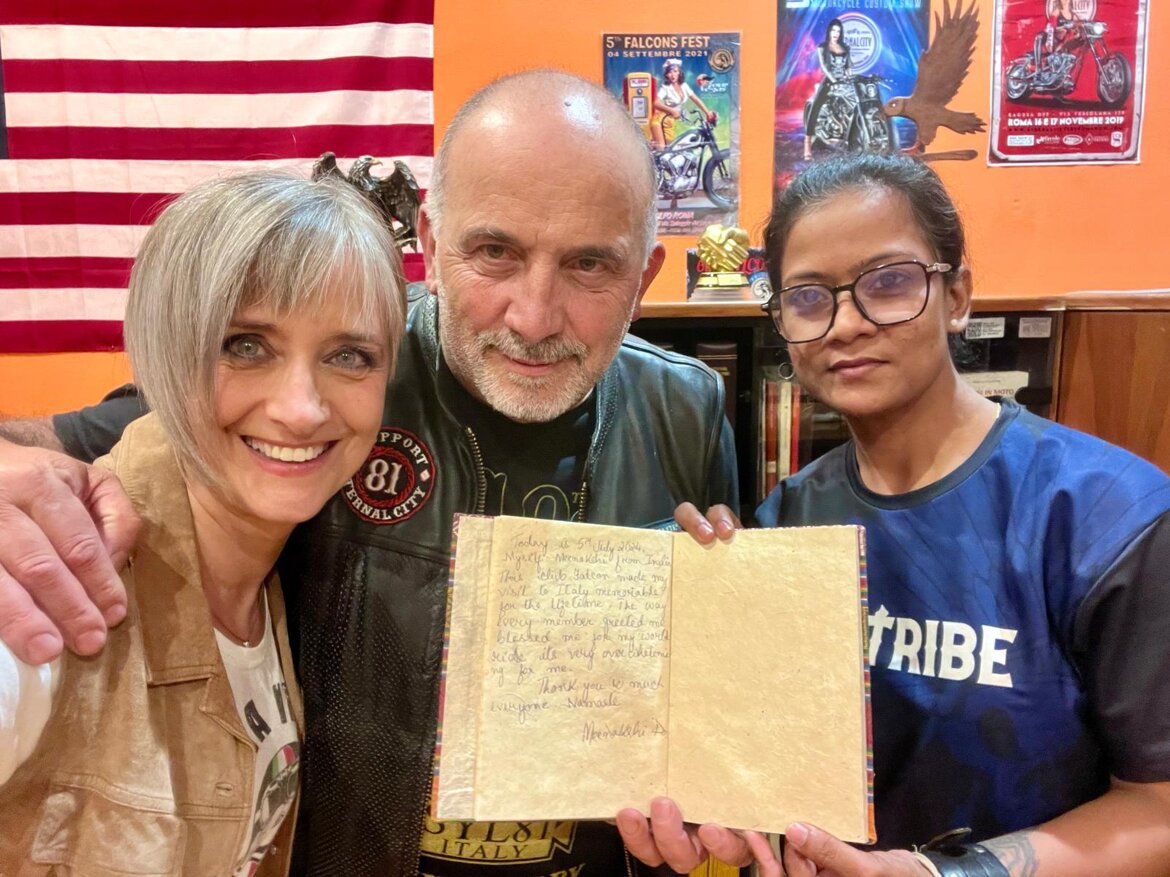 5th FALCONS FEST
04 SETTEMBRE 2021
MOTORCYCLE CUSTOM SHOW
ROMA 16 E 17 NOVEMBRE 2019
SUPPORT
81
ETERNAL CITY
Today is 5th July 2024.
Myself Meenakshi from India
This club Falcon made my
visit to Italy memorable
for the lifetime. The way
every member greeted me
blessed me for my world
ride its very overwhelmi
ng for me.
Thank you so much
everyone Namaste
Meenakshi D
TRIBE
ITALY